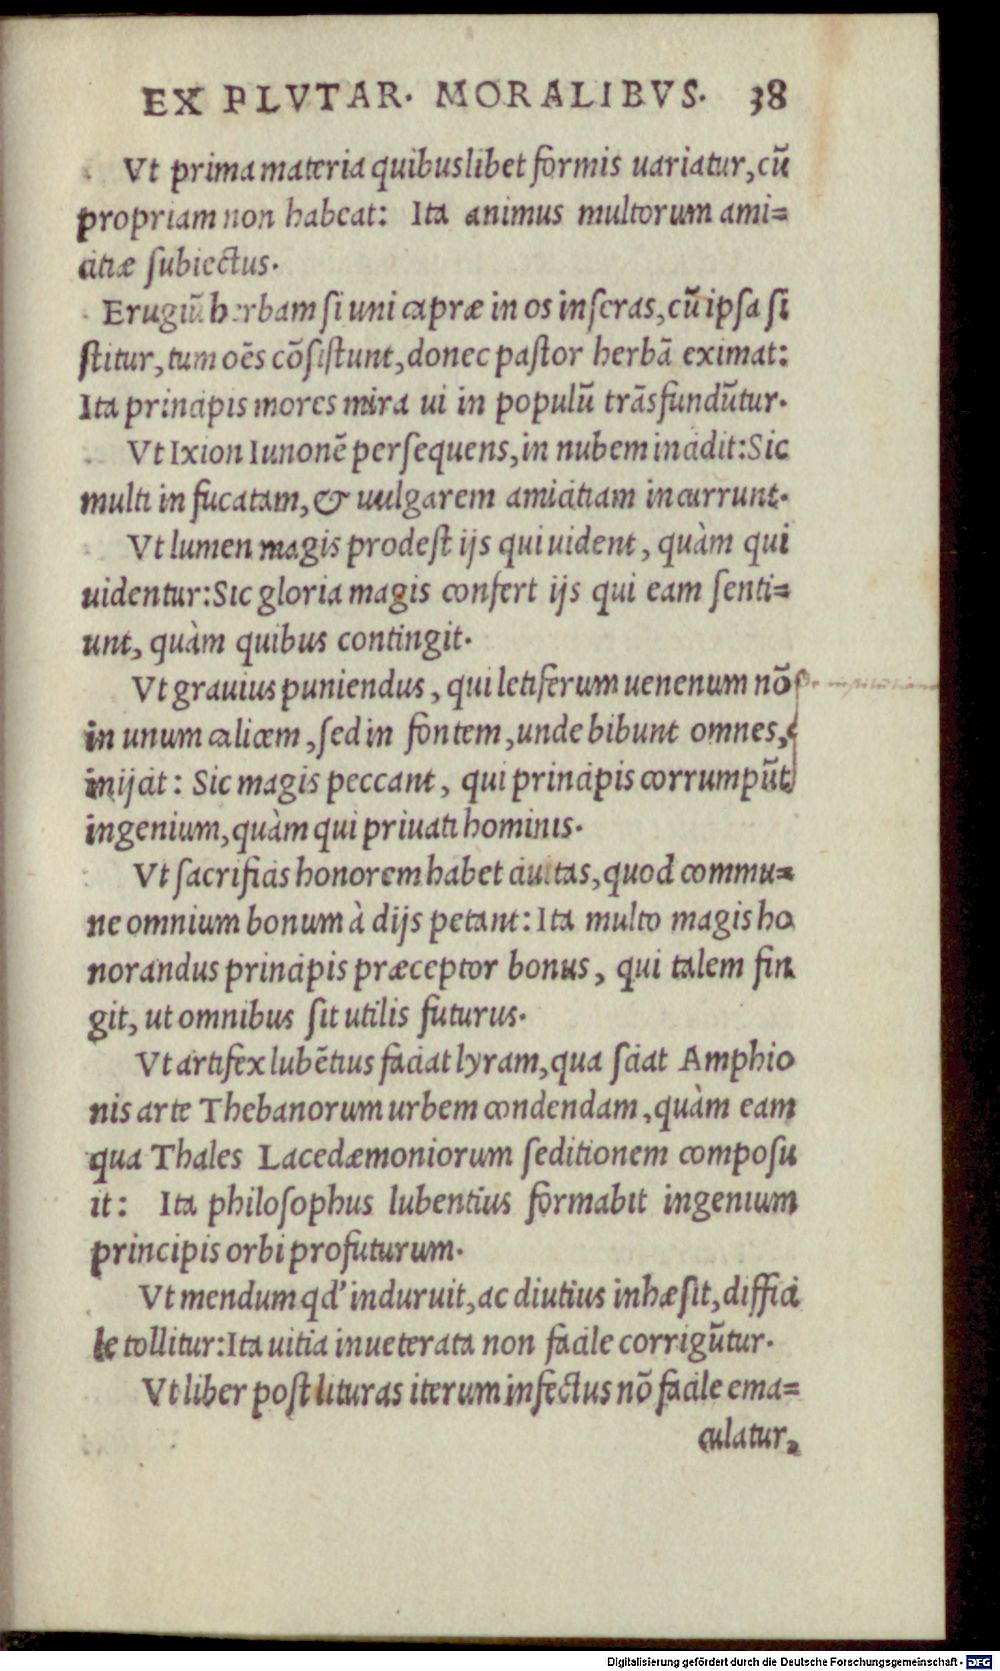 EX PLVTAR. MORALIBVS. 38
Vt prima materia quibuslibet formis uariatur, cũ
propriam non habeat: Ita animus multorum ami=
citiæ subiectus.
Erugiũ herbam si uni capræ in os inseras, cũ ipsa si
stitur, tum oẽs cõsistunt, donec pastor herbã eximat:
Ita principis mores mira ui in populũ trãsfundũtur.
Vt Ixion Iunonẽ persequens, in nubem incidit: Sic
multi in fucatam, & uulgarem amicitiam incurrunt.
Vt lumen magis prodest ijs qui uident, quàm qui
uidentur: Sic gloria magis confert ijs qui eam senti=
unt, quàm quibus contingit.
Vt grauius puniendus, qui letiferum uenenum nõ
in unum calicem, sed in fontem, unde bibunt omnes,
inijcit: Sic magis peccant, qui principis corrumpũt
ingenium, quàm qui priuati hominis.
Vt sacrificis honorem habet ciuitas, quod commu=
ne omnium bonum à dijs petant: Ita multo magis ho
norandus principis præceptor bonus, qui talem fin
git, ut omnibus sit utilis futurus.
Vt artifex lubẽtius faciat lyram, qua sciat Amphio
nis arte Thebanorum urbem condendam, quàm eam
qua Thales Lacedæmoniorum seditionem composu
it: Ita philosophus lubentius formabit ingenium
principis orbi profuturum.
Vt mendum qd' induruit, ac diutius inhæsit, diffici
le tollitur: Ita uitia inueterata non facile corrigũtur.
Vt liber post lituras iterum infectus nõ facile ema=
culatur,
Digitalisierung gefördert durch die Deutsche Forschungsgemeinschaft - DFG